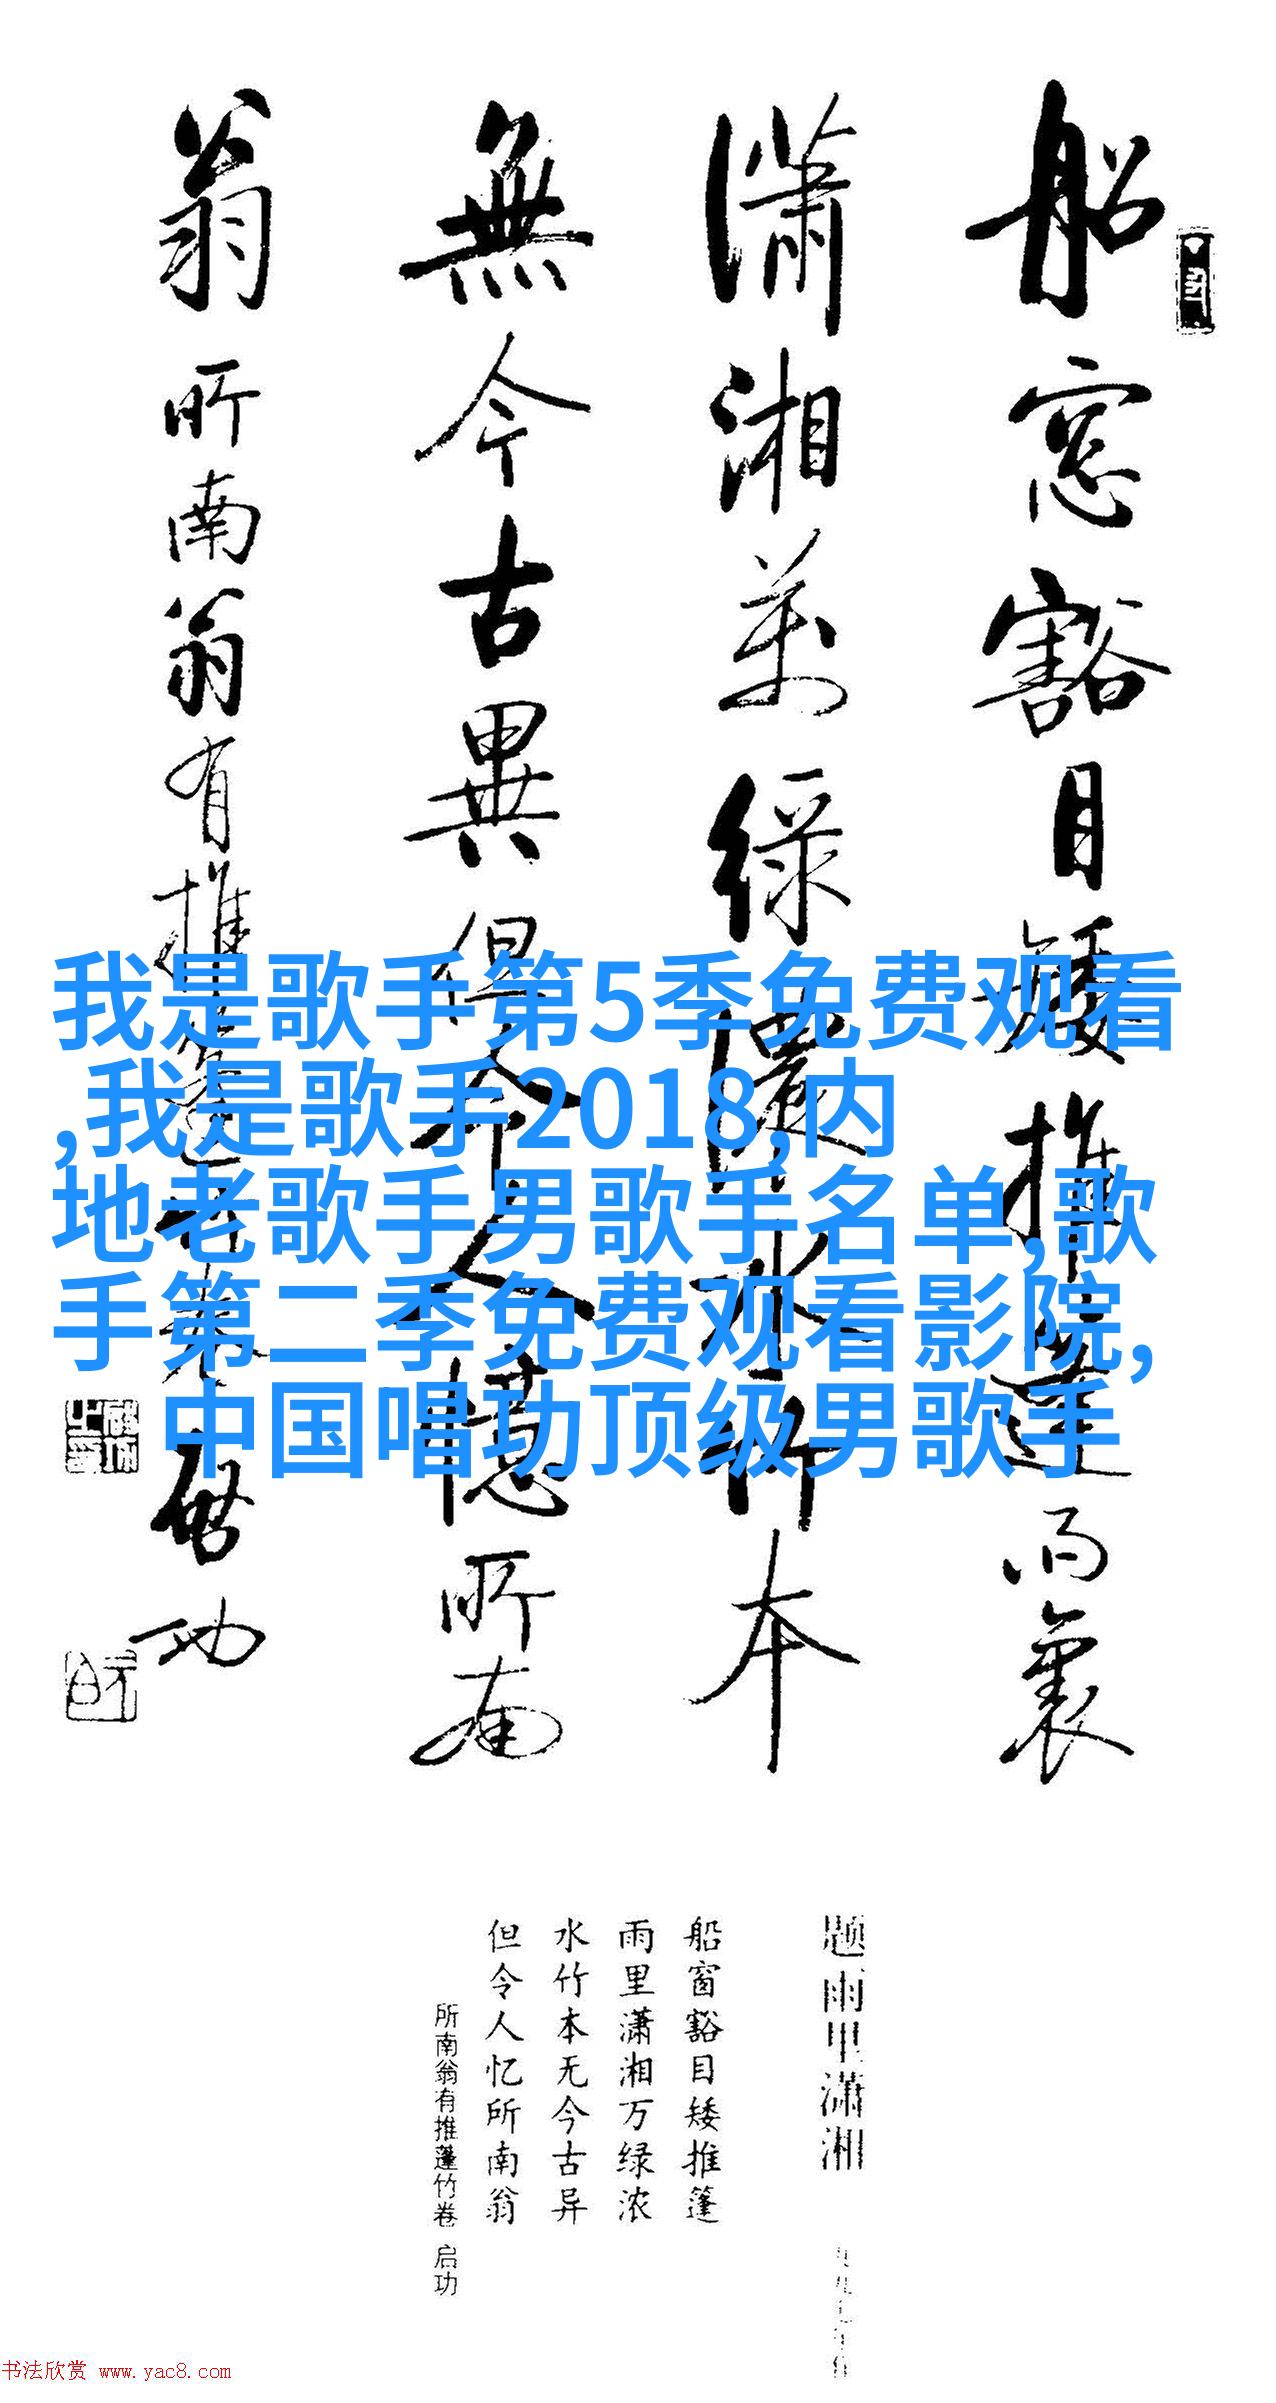 船窓豁目矮推篷雨裏
瀟湘萬緑濃水竹本
無今古異但令人憶所南
翁 所南翁有推篷竹卷 启功
我是歌手第5季免费观看
,我是歌手2018,内
地老歌手男歌手名单,歌
手第二季免费观看影院,
中国唱功顶级男歌手
题雨里潇湘
船窗豁目矮推篷
雨里潇湘万绿浓
水竹本无今古异
但令人忆所南翁
所南翁有推蓬竹卷 启功
书法欣赏 www.yac8.com